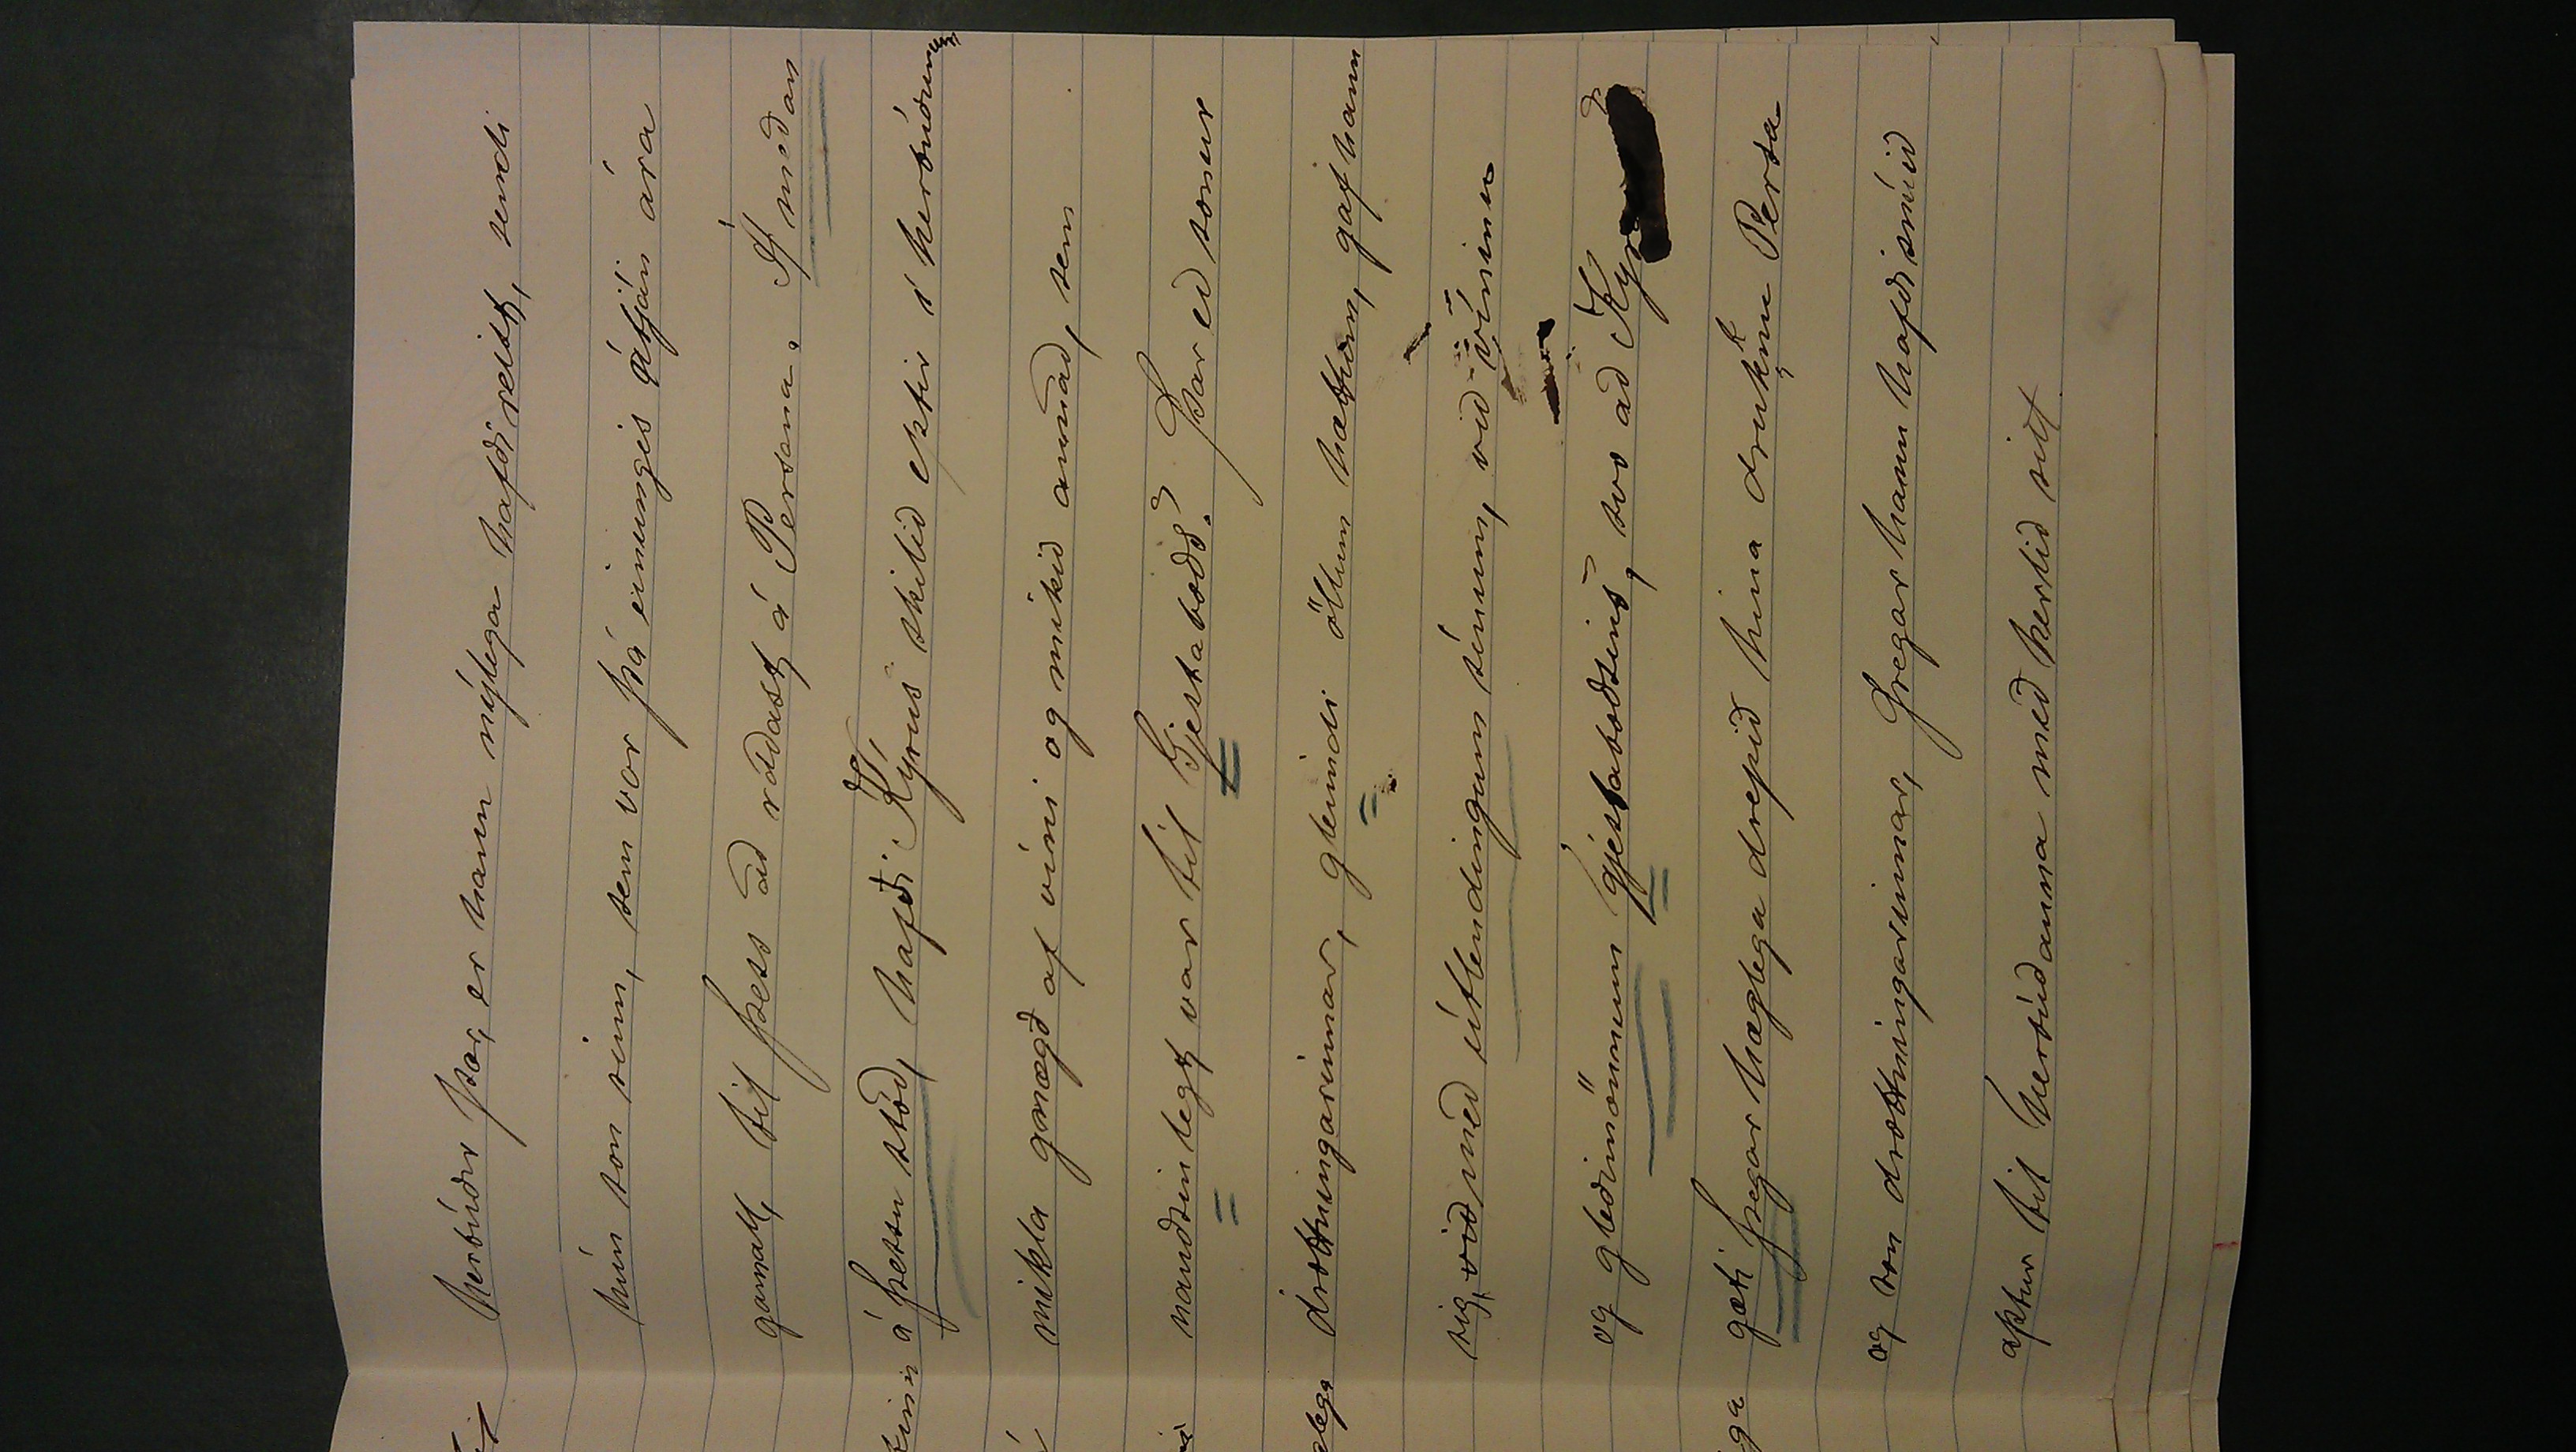 herbúðir þær, er hann nýlega hafði reist, sendi
hún son sinn, sem var þá einungis átján ára
gamall, til þess að ráðast á Persana. Á meðan
á þessu stóð, hafði Kýrus skilið eptir í herbúðunum
mikla gnægð af víni og mikið annað, sem
nauðsinlegt var til Gjestaboðs. Þareð sonur
drottningarinnar, gleimdi öllum hættum, gaf hann
sig, við með útlendingum sínum, við víninu
og gleðimönnum gjestaboðsins, svo að Kýrus
gæti þegar hæglega drepið hina druknu Persa
og son drottningarinnar, Þregar hann hafði snúið
aptur til herbúðanna með herlið sitt